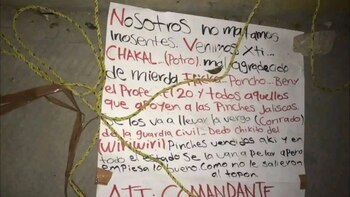 Nosotros no matamos
inosentes. Venimos x ti...
CHAKAL (Potro) mal agradecido
de mierda Tricky Poncho.. Beny
el Profe, el 20 y todos aquellos
que apoyen a las Pinches Jaliscas.
se los va a llevar la verga (Conrado)
de la guardia civil - Dedo Chikito del
Wiriwiri Pinches vendidos aki y en
todo el estado Se la van a pelar apenas
empiesa lo bueno Como no le salieron
al topon
ATT: COMANDANTE